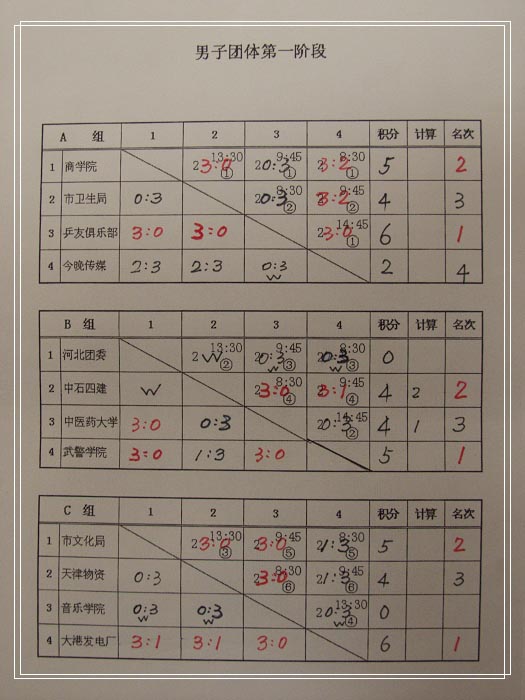 男子团体第一阶段
A 组 1 2 3 4 积分 计算 名次
1 商学院 2 13:30 3:0 ① 2 9:45 0:3 ① 2 8:30 3:2 ① 5 2
2 市卫生局 0:3 2 8:30 0:3 ② 2 9:45 3:2 ② 4 3
3 乒友俱乐部 3:0 3:0 2 14:45 3:0 ① 6 1
4 今晚传媒 2:3 2:3 0:3 W 2 4
B 组 1 2 3 4 积分 计算 名次
1 河北团委 2 13:30 W ② 2 9:45 0:3 W ③ 2 8:30 0:3 W ③ 0
2 中石四建 W 2 8:30 3:0 ④ 2 9:45 3:1 ④ 4 2 2
3 中医药大学 3:0 0:3 2 14:45 0:3 ② 4 1 3
4 武警学院 3:0 1:3 3:0 5 1
C 组 1 2 3 4 积分 计算 名次
1 市文化局 2 13:30 3:0 ③ 2 9:45 3:0 ⑤ 2 8:30 1:3 ⑤ 5 2
2 天津物资 0:3 2 8:30 3:0 ⑥ 2 9:45 1:3 ⑥ 4 3
3 音乐学院 0:3 W 0:3 W 2 13:30 0:3 W ④ 0
4 大港发电厂 3:1 3:1 3:0 6 1